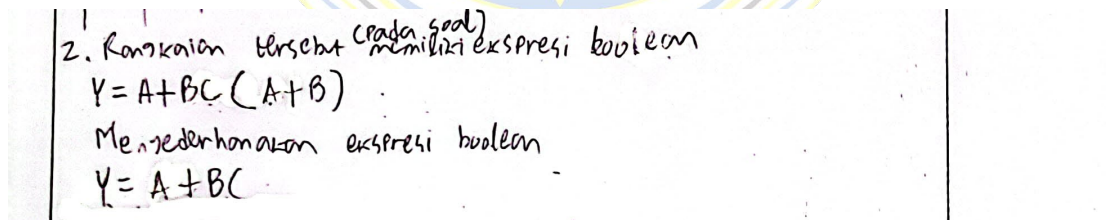 2. Rangkaian tersebut (pada soal) memiliki ekspresi boolean
Y = A+BC (A+B)
Menyederhanakan ekspresi boolean
Y = A + BC